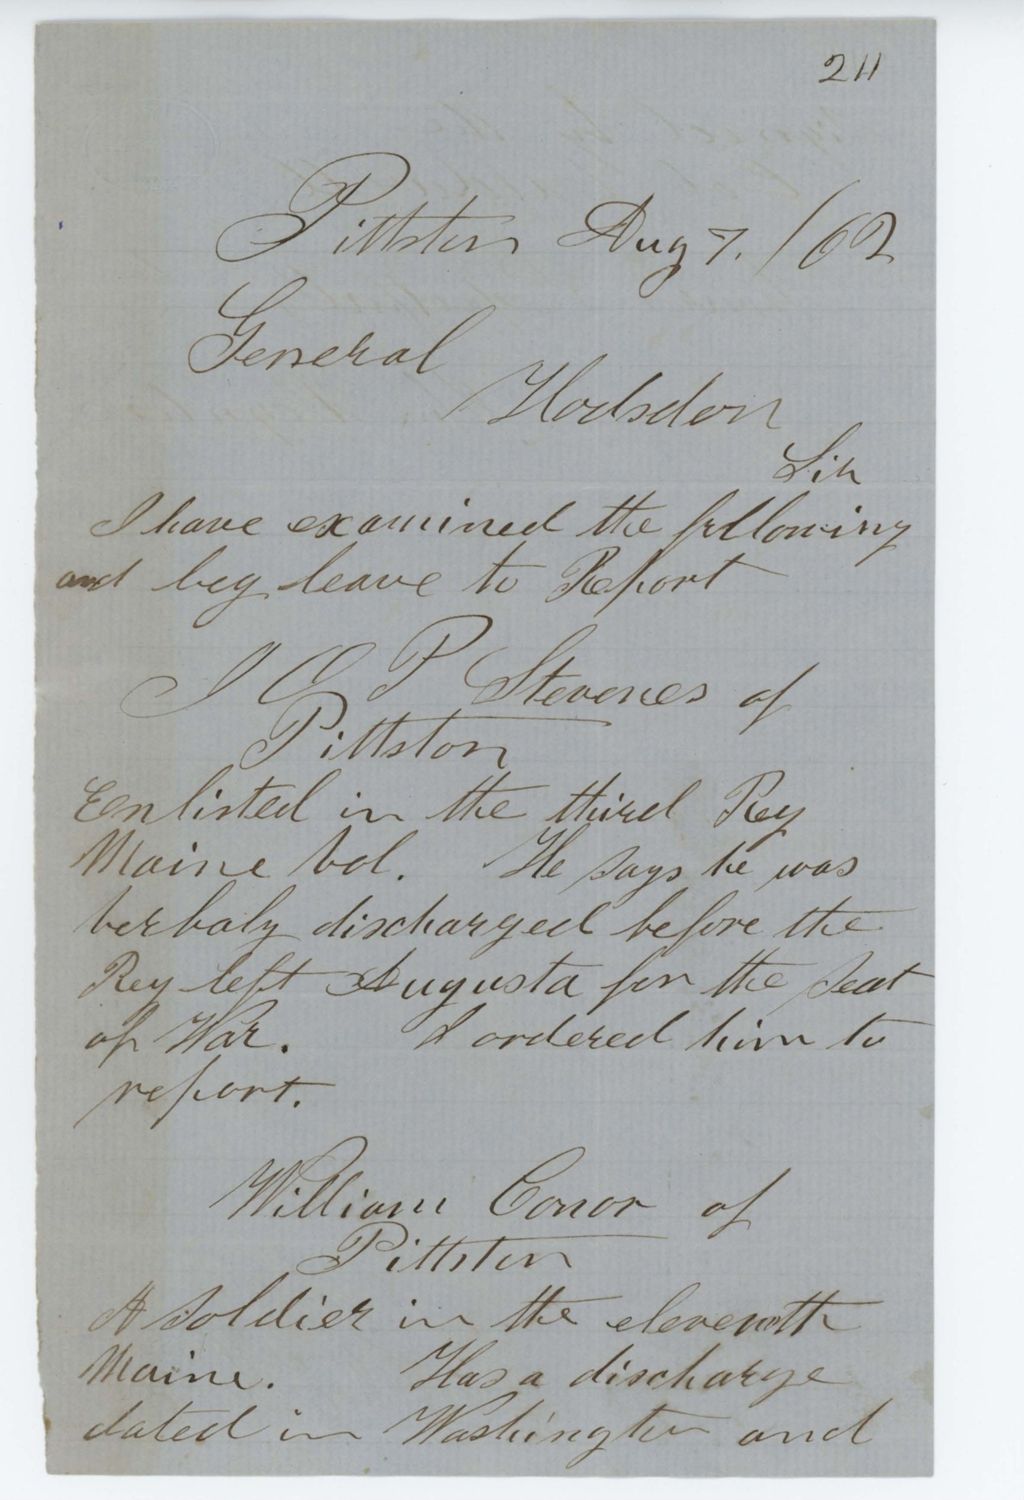 211
Pittston Aug 7. /62
General
Hodsdon
Sir
I have examined the following
and beg leave to Report
J O P Stevenes of
Pittston
Enlisted in the third Reg
Maine Vol. He says he was
verbaly discharged before the
Reg left Augusta for the seat
of War. I ordered him to
report.
William Conor of
Pittston
A soldier in the eleventh
Maine. Has a discharge
dated in Washington and